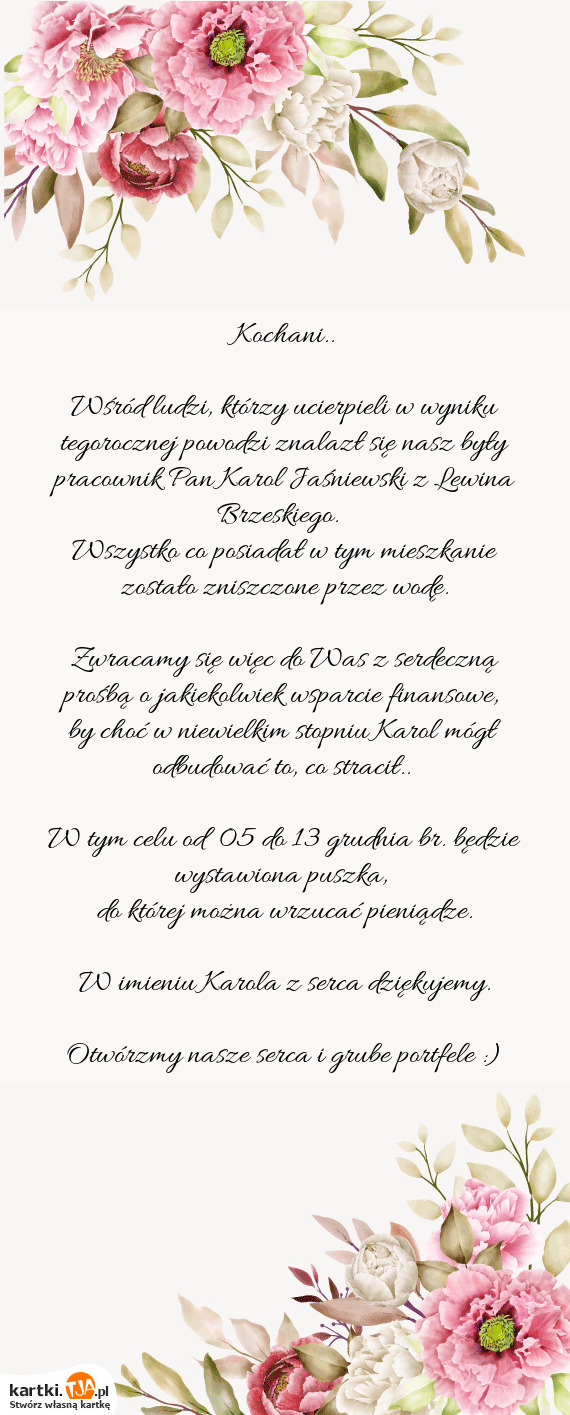 Kochani..
Wśród ludzi, którzy ucierpieli w wyniku
tegorocznej powodzi znalazł się nasz były
pracownik Pan Karol Jaśniewski z Lewina
Brzeskiego.
Wszystko co posiadał w tym mieszkanie
zostało zniszczone przez wodę.
Zwracamy się więc do Was z serdeczną
prośbą o jakiekolwiek wsparcie finansowe,
by choć w niewielkim stopniu Karol mógł
odbudować to, co stracił..
W tym celu od 05 do 13 grudnia br. będzie
wystawiona puszka,
do której można wrzucać pieniądze.
W imieniu Karola z serca dziękujemy.
Otwórzmy nasze serca i grube portfele :)
kartki.TJA.pl
Stwórz własną kartkę